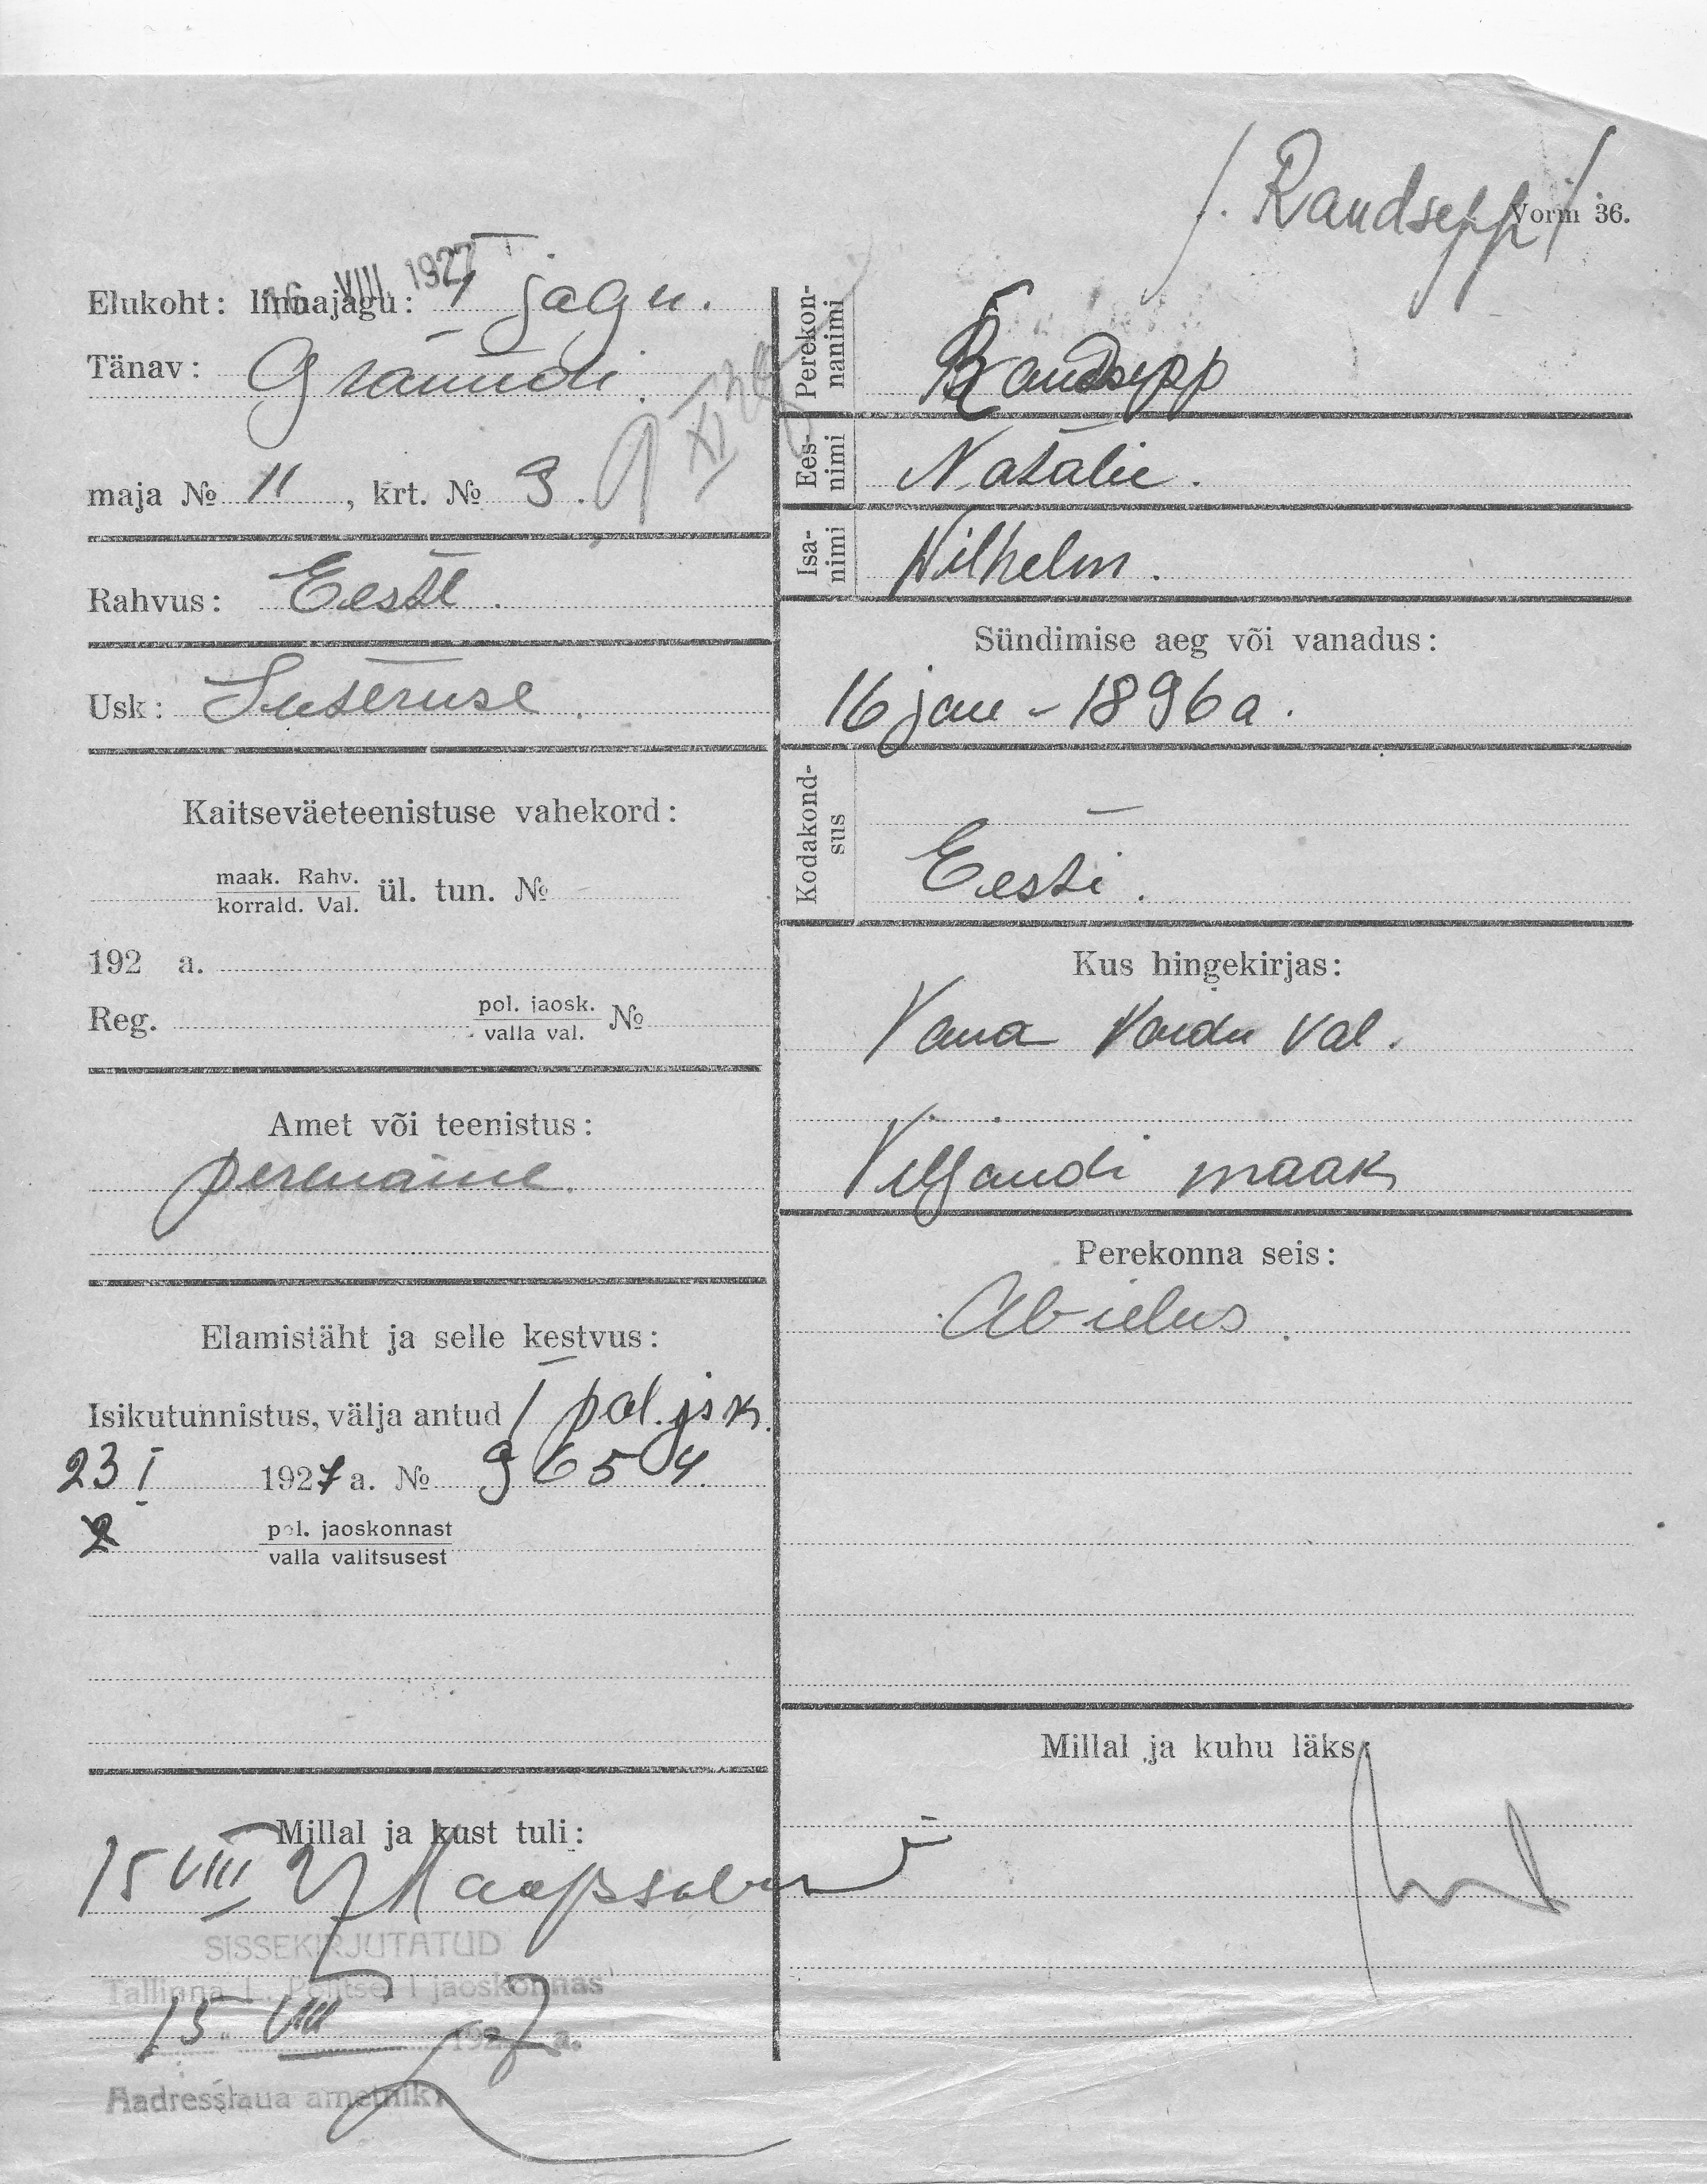 /. Randsepp /
Vorm 36.
16 VIII 1927
Elukoht: linnajagu: 1 jagu.
Tänav:
maja № 11, krt. № 9.
9 XI
Rahvus: Eesti.
Usk: Luteruse.
Kaitseväeteenistuse vahekord:
maak. Rahv.
korrald. Val.
ül. tun. №
192 a.
Reg. pol. jaosk.
valla val. №
Amet või teenistus:
perenaine.
Elamistäht ja selle kestvus:
Isikutunnistus, välja antud I pol. jsk.
23 I 1927 a. № 9654.
pol. jaoskonnast
valla valitsusest
Millal ja kust tuli:
15 VIII 27 Haapsalu
SISSEKIRJUTATUD
Tallinna L. Politsei I jaoskonnas
15. VIII 1927 a.
Aadresslaua ametnik:
Perekon-
nanimi
Randsepp
Ees-
nimi
Natalie.
Isa-
nimi
Wilhelm.
Sündimise aeg või vanadus:
16 jan - 1896 a.
Kodakond-
sus
Eesti.
Kus hingekirjas:
Vana Võidu val.
Viljandi maak
Perekonna seis:
Abielus.
Millal ja kuhu läks: